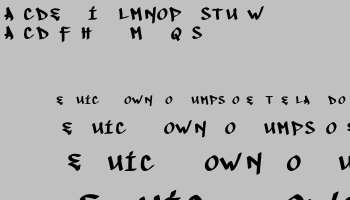 A CDE Í LMNOP STU W
A CD F H M Q S
E UIC OWN O UMPS O E T E LA DO
E UIC OWN O UMPS O
E UIC OWN O